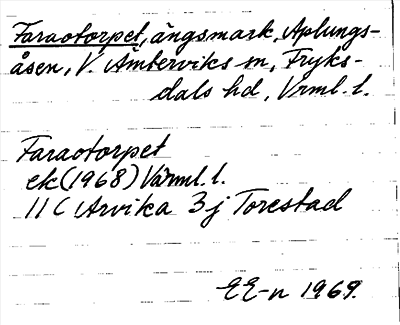 Faraotorpet, ängsmark, Aplungs-
åsen, V. Ämterviks sn, Fryks-
dals hd, Vrml. l.
Faraotorpet
ek (1968) Värml. l.
11 C Arvika 3j Torestad
EE-n 1969.